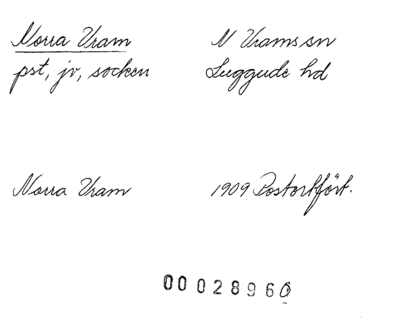 Norra Vram N Vrams sn
pst, jv, socken Luggude hd
Norra Vram 1909 Postortfört.
00028960